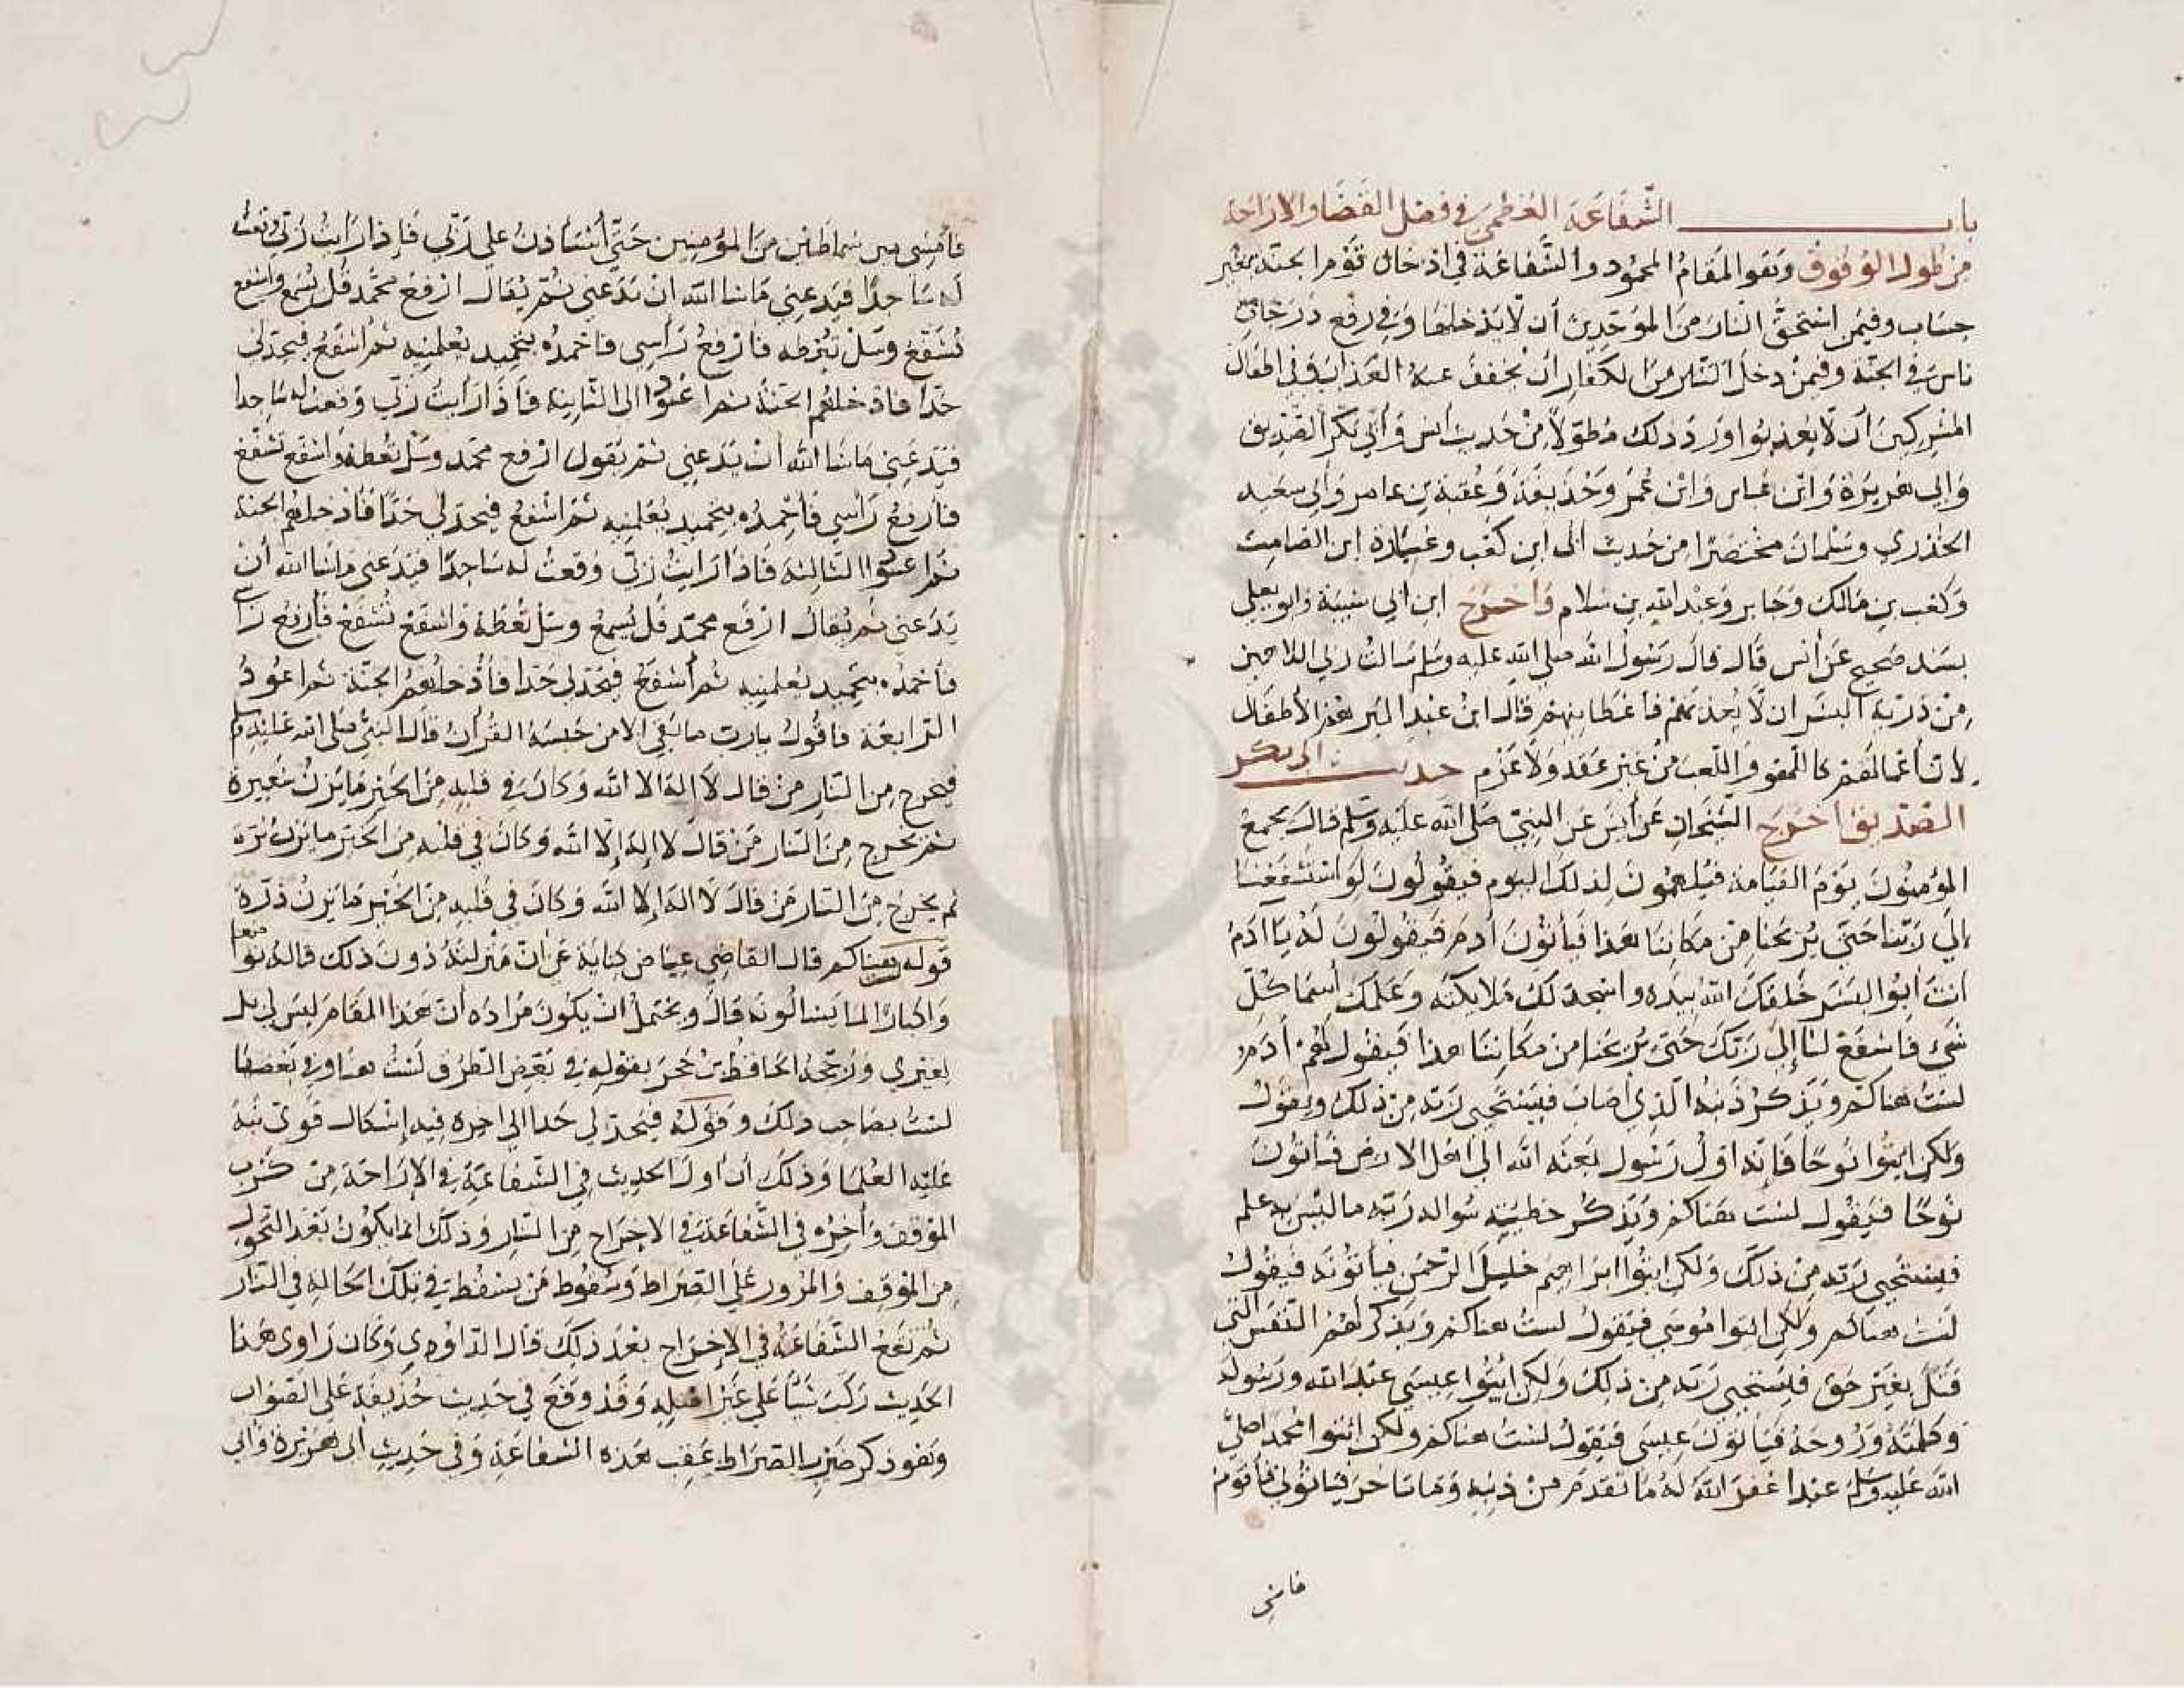 باب الشفاعة العظمى في فصل القضا والاراحة
من طول الوقوف وهو المقام المحمود والشفاعة في ادخال قوم الجنة بغير
حساب وفيمن استحق النار من الموحدين أن لا يدخلها وفي رفع درجات
ناس في الجنة وفيمن دخل النار من الكفار أن يخفف عنه العذاب وفي اطفال
المشركين أن لا يعذبوا اورد ذلك مطولا من حديث أنس وأبي بكر الصديق
وابي هريرة وابن عباس وابن عمر وحذيفة وعقبة بن عامر وأبي سعيد
الخذري وسلمان مختصرا من حديث أبي ابن كعب وعبادة ابن الصامت
وكعب بن مالك وجابر وعبد الله بن سلام وأخرج ابن أبي شيبة وابو يعلي
بسند صحيح عن أنس قال قال رسول الله صلي الله عليه وسلم سالت ربي اللاهين
من ذرية البشر ان لا يعذبهم فأعطانيهم قال ابن عبد البر هم الأطفال
لأن أعمالهم كاللهو واللعب من غير عقد ولا عزم حديث ابي بكر
الصديق أخرج الشيخان عن أنس عن النبي صلى الله عليه وسلم قال يجمع
المؤمنون يوم القيامة فيلهمون لذلك اليوم فيقولون لو استشفعنا
الي ربنا حتى يريحنا من مكاننا هذا فيأتون أدم فيقولون له يا آدم
انت ابوا البشر خلقك الله بيده واسجد لك ملايكته وعلمك أسما كل
شيء فاشفع لنا إلى ربك حتى يريحنا من مكاننا هذا فيقول لهم أدم
لست هناكم ويذكر ذنبه الذي أصاب فيستحيي ربه من ذلك ويقول
ولكن ايتوا نوحا فانه اول رسول بعثه الله الى اهل الارض فيأتون
نوحا فيقول لست هناكم ويذكر خطيئته سواله ربه ما ليس به علم
فيستحيي ربه من ذلك ولكن ايتوا ابراهيم خليل الرحمن فيأتونه فيقول
لست هناكم ولكن ايتوا موسي فيقول لست هناكم ويذكر لهم النفس التي
قتل بغير حق فيستحيي ربه من ذلك ولكن ايتوا عيسي عبد الله ورسوله
وكلمته وروحه فيأتون عيسى فيقول لست هناكم ولكن ائتوا محمدا صلي
الله عليه وسلم عبدا غفر الله له ما تقدم من ذنبه وما تاخر فياتوني فأقوم
فامشي
فأمشي بين سماطين من المؤمنين حتى أستأذن علي ربي فإذا رايت ربي وقعت
له ساجدا فيدعني ماشا الله ان يدعني ثم يقال ارفع محمد قل تسمع واشفع
تشفع وسل تعطه فارفع رأسي فاحمده بتحميد يعلمنيه ثم اشفع فيحد لي
حدا فادخلهم الجنة ثم اعود الى الثانية فاذا رايت ربي وقعت له ساجدا
فيدعني ماشا الله أن يدعني ثم يقول ارفع محمد وسل تعطه واشفع تشفع
فارفع رأسي فأحمده بتحميد يعلمنيه ثم اشفع فيحد لي حدا فأدخلهم الجنة
ثم اعود الثالثة فاذا رايت ربي وقعت له ساجدا فيدعني ماشا الله أن
يدعني ثم يقال ارفع محمد قل يسمع وسل تعطه واشفع تشفع فأرفع راسي
فأحمده بتحميد يعلمنيه ثم أشفع فيحد لي حدا فأدخلهم الجنة ثم اعود
الرابعة فاقول يارب ما بقي الا من حبسه القرآن قال النبي صلى الله عليه وسلم
فيخرج من النار من قال لا إله الا الله وكان في قلبه من الخير ما يزن شعيرة
ثم يخرج من النار من قال لا اله إلا الله وكان في قلبه من الخير ما يزن برة
ثم يخرج من النار من قال لا اله إلا الله وكان في قلبه من الخير ما يزن ذرة
قوله هناكم قال القاضي عياض كناية عن أن منزلته دون ذلك قاله تواضعا
واكبارا لما يسالونه قال ويحتمل ان يكون مراده أن هذا المقام ليس لي بل
لغيري ورجحه الحافظ بن حجر بقوله في بعض الطرق لست هنا وفي بعضها
لست بصاحب ذلك وقوله فيحد لي حدا الي اخره فيه إشكال قوي نبه
عليه العلما وذلك أن أول الحديث في الشفاعة في الإراحة من كرب
الموقف وأخره في الشفاعة في الاخراج من النار وذلك انما يكون بعد التحول
من الموقف والمرور على الصراط وسقوط من يسقط في تلك الحالة في النار
ثم تقع الشفاعة في الإخراج بعد ذلك قال الداوودي وكان راوي هذا
الحديث ركب شيأ علي غير اصله وقد وقع في حديث حذيفة على الصواب
وهو ذكر ضرب الصراط عقب هذه الشفاعة وفي حديث أبي هريرة وأبي